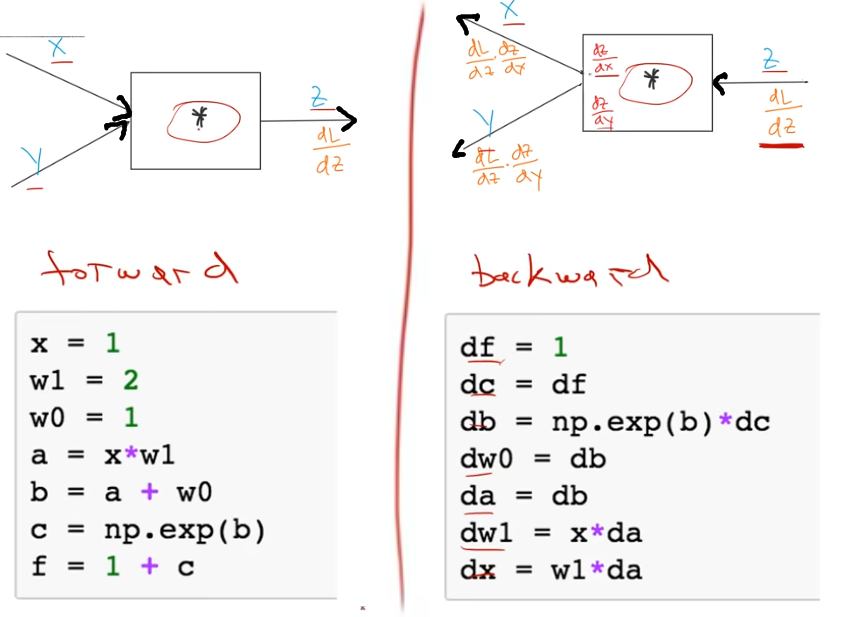 X
*
Z
dL
dz
Y
forward
x = 1
w1 = 2
w0 = 1
a = x*w1
b = a + w0
c = np.exp(b)
f = 1 + c
X
dL/dz . dz/dx
dz/dx
*
dz/dy
Z
dL
dz
Y
dL/dz . dz/dy
backward
df = 1
dc = df
db = np.exp(b)*dc
dw0 = db
da = db
dw1 = x*da
dx = w1*da